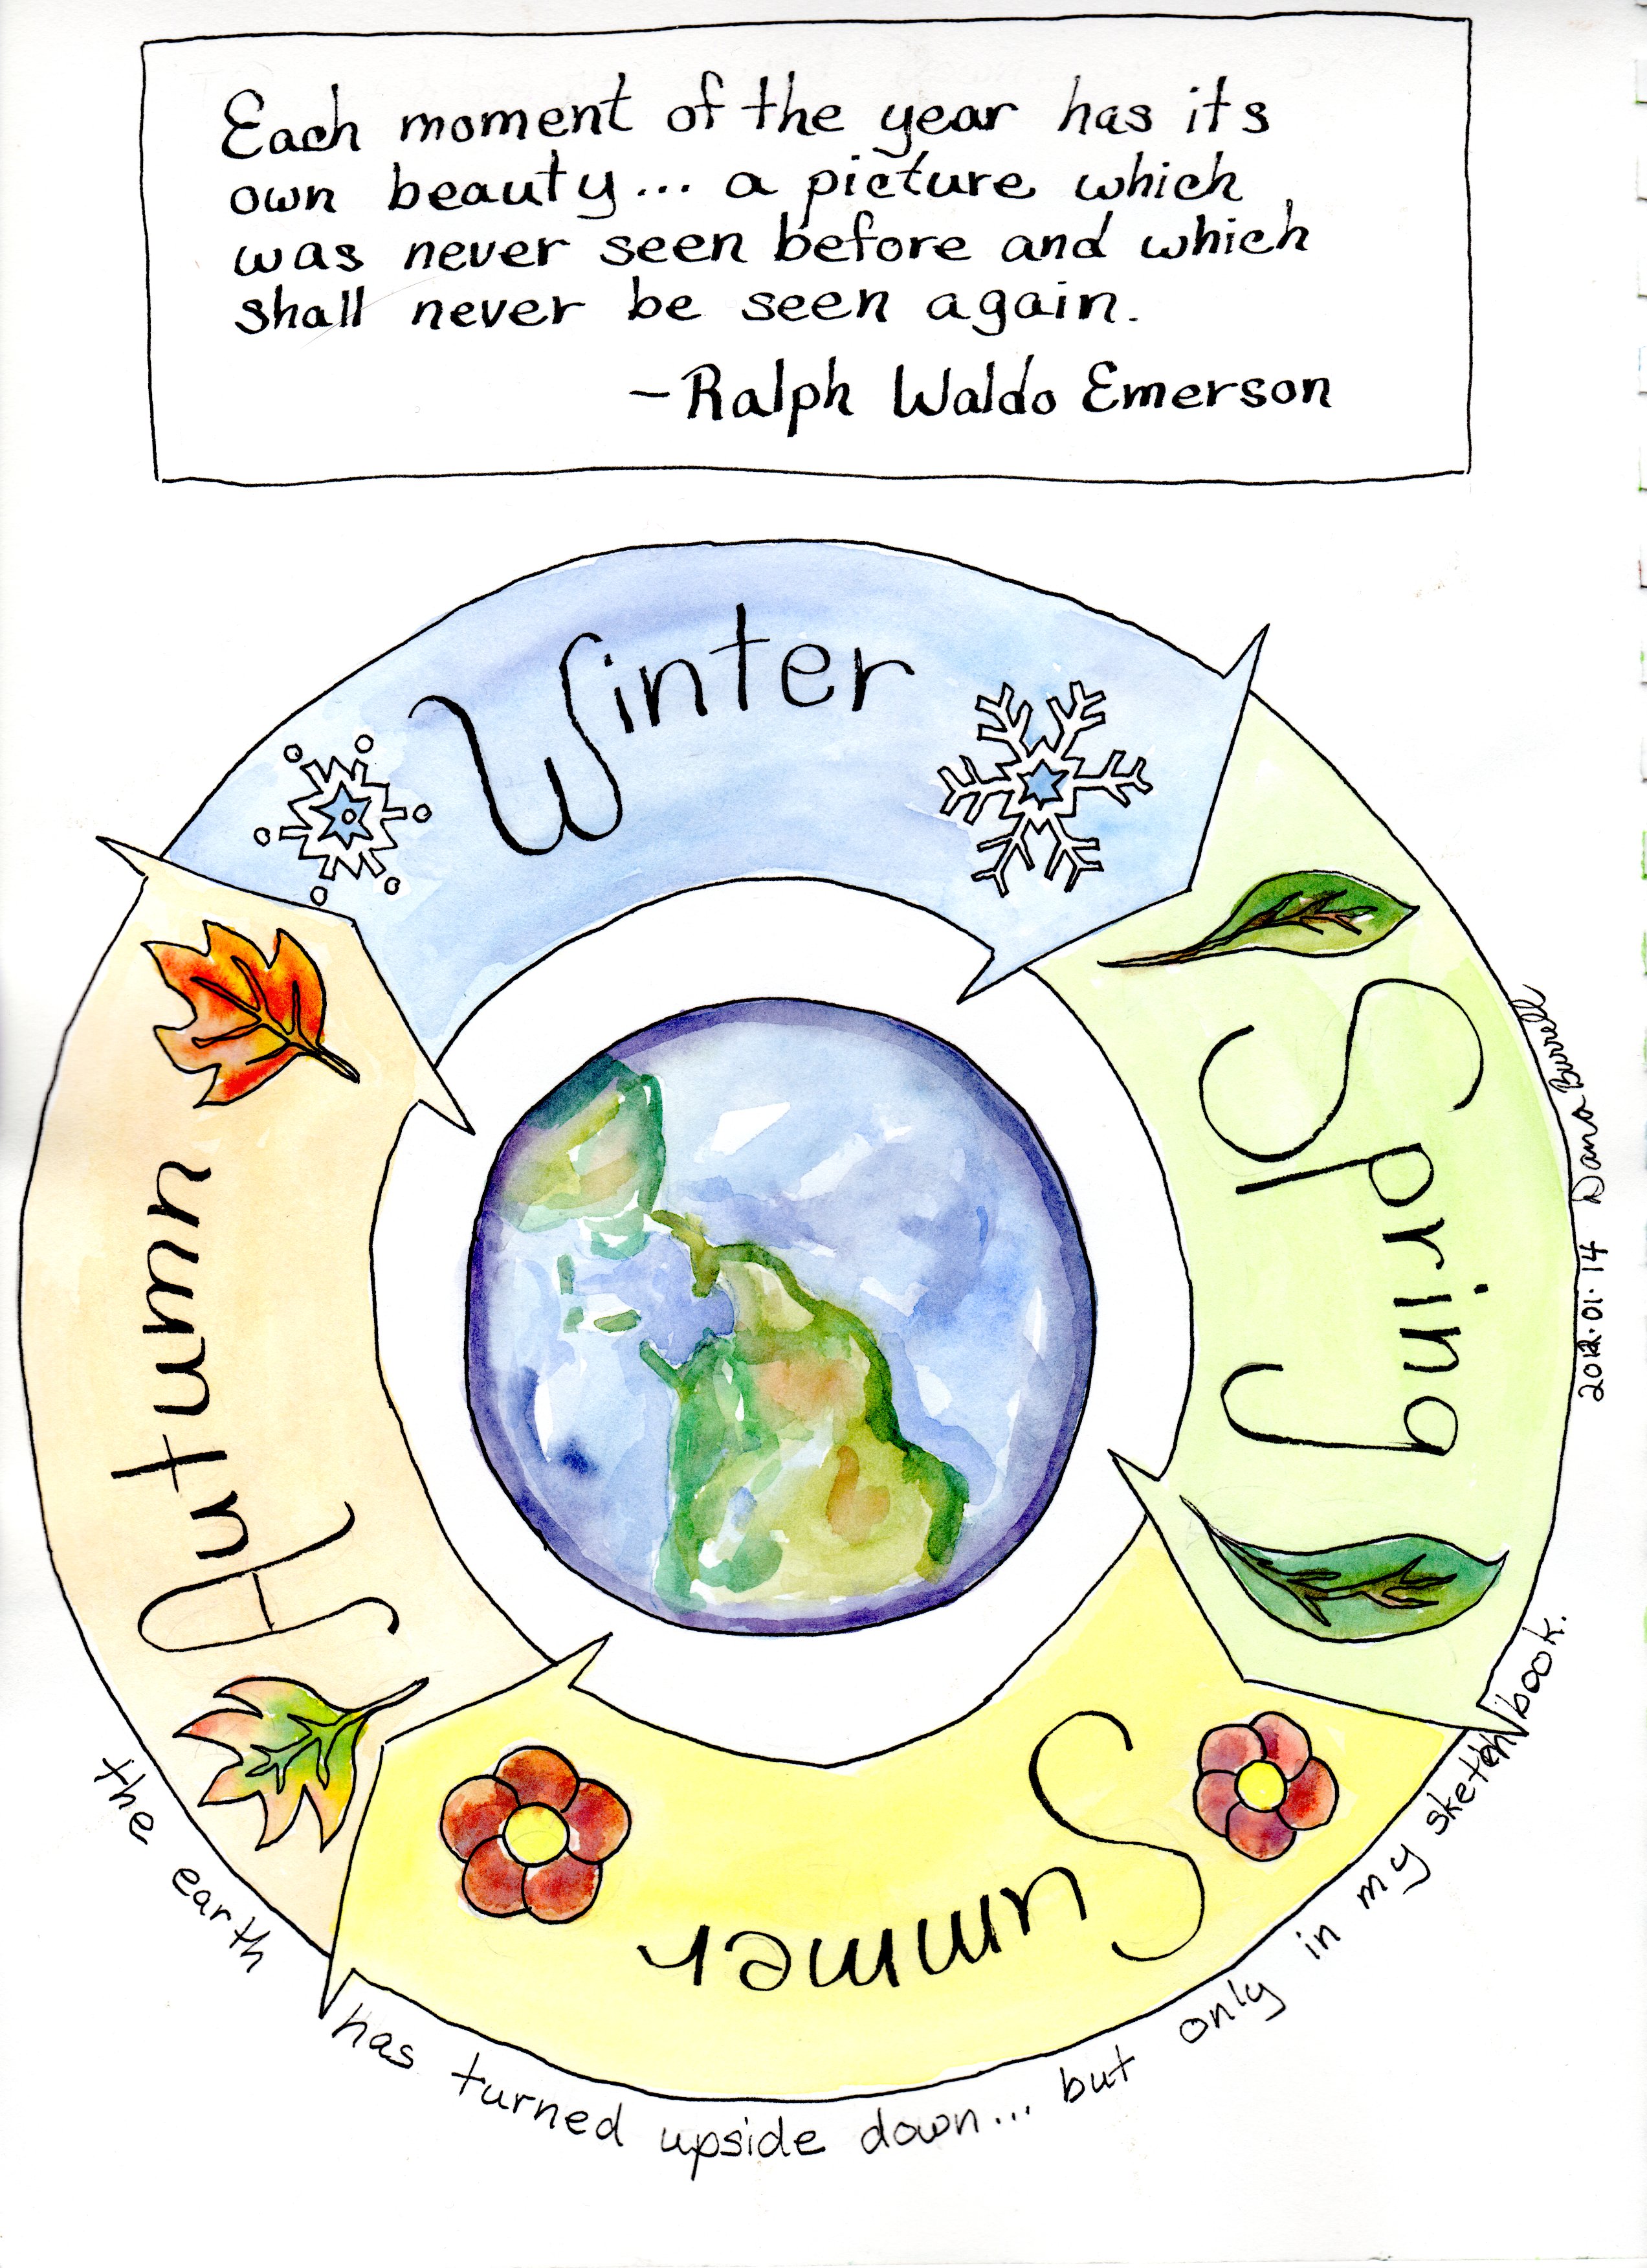 Each moment of the year has its
own beauty... a picture which
was never seen before and which
shall never be seen again.
~Ralph Waldo Emerson
Winter
Spring
Summer
Autumn
2012.01.14 Dana Burrell
the earth has turned upside down... but only in my sketchbook.